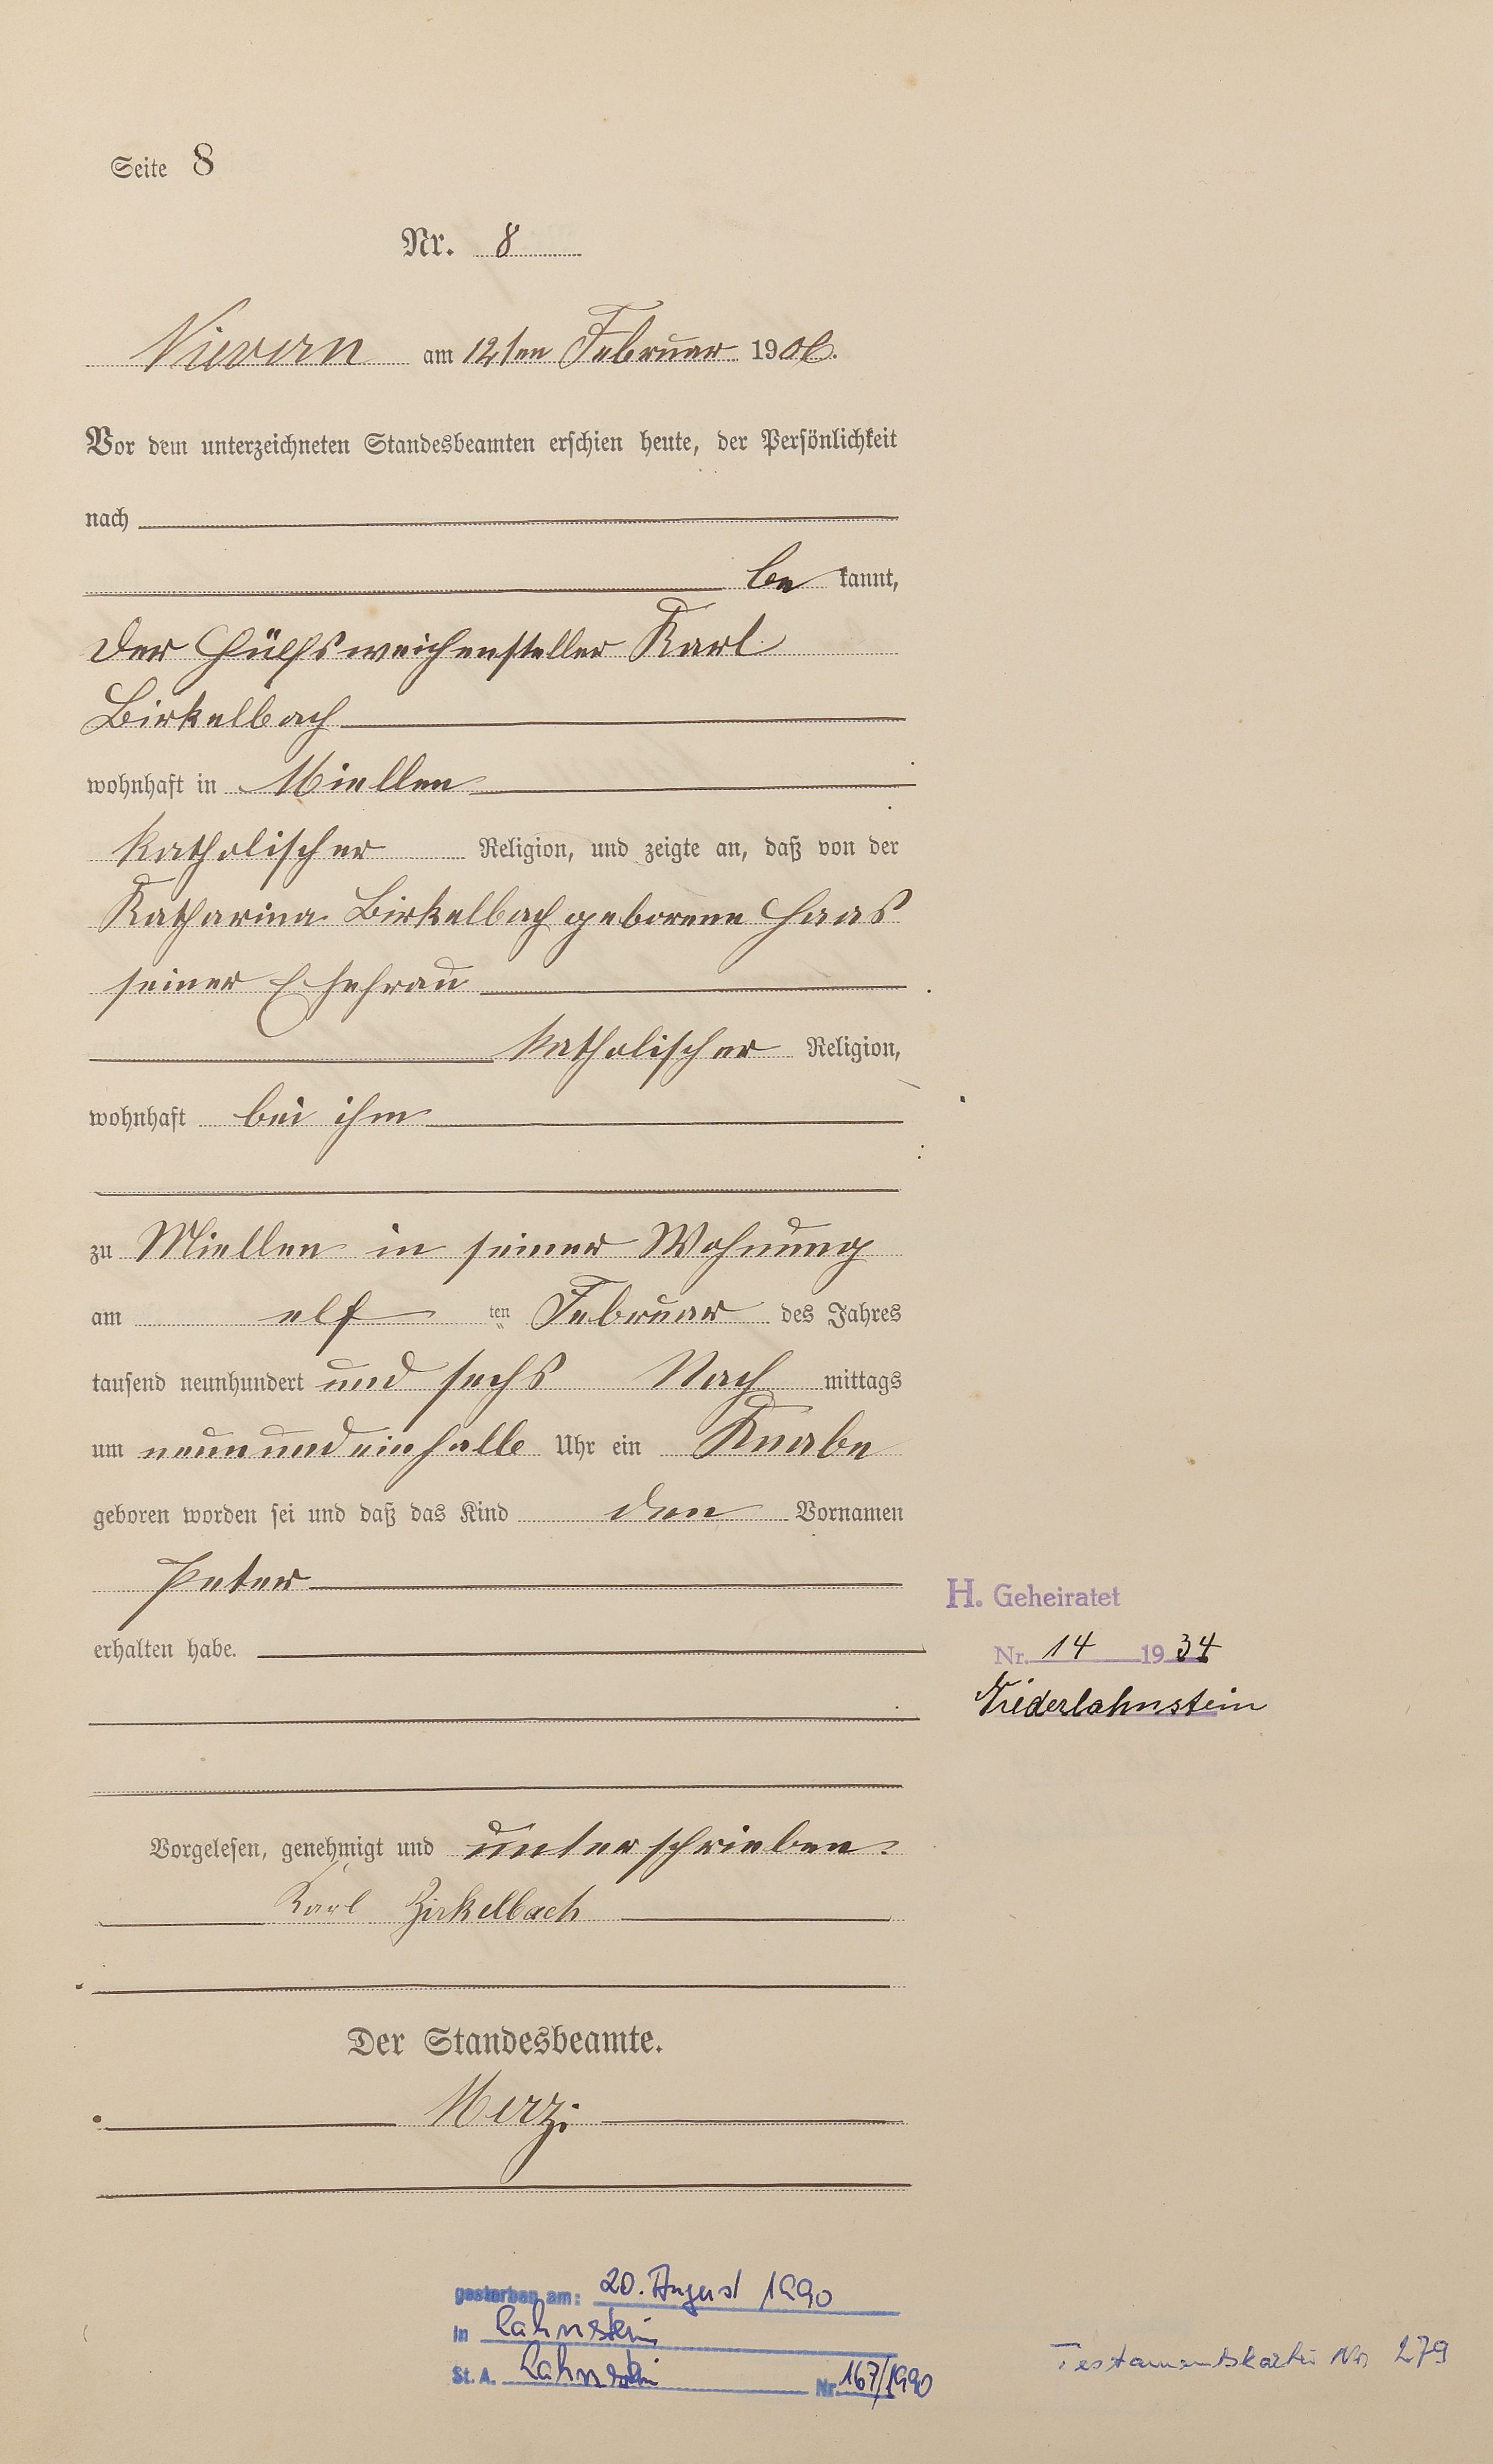 Seite 8
Nr. 8
Nievern am 12ten Februar 1906.
Vor dem unterzeichneten Standesbeamten erschien heute, der Persönlichkeit
nach
be kannt,
der Hülfsweichensteller Karl
Birkelbach
wohnhaft in Miellen
katholischer Religion, und zeigte an, daß von der
Katharina Birkelbach geborene Haas
seiner Ehefrau
katholischer Religion,
wohnhaft bei ihm
zu Miellen in seiner Wohnung
am elf ten Februar des Jahres
tausend neunhundert und sechs Nach mittags
um neun und ein halb Uhr ein Knabe
geboren worden sei und daß das Kind den Vornamen
Peter
H. Geheiratet
erhalten habe.
Nr. 14 1934
Niederlahnstein
Vorgelesen, genehmigt und unterschrieben.
Karl Birkelbach
Der Standesbeamte.
Merz.
gestorben am: 20. August 1990
in Lahnstein
St. A. Lahnstein Nr. 167/1990
Testamentskartei Nr. 279